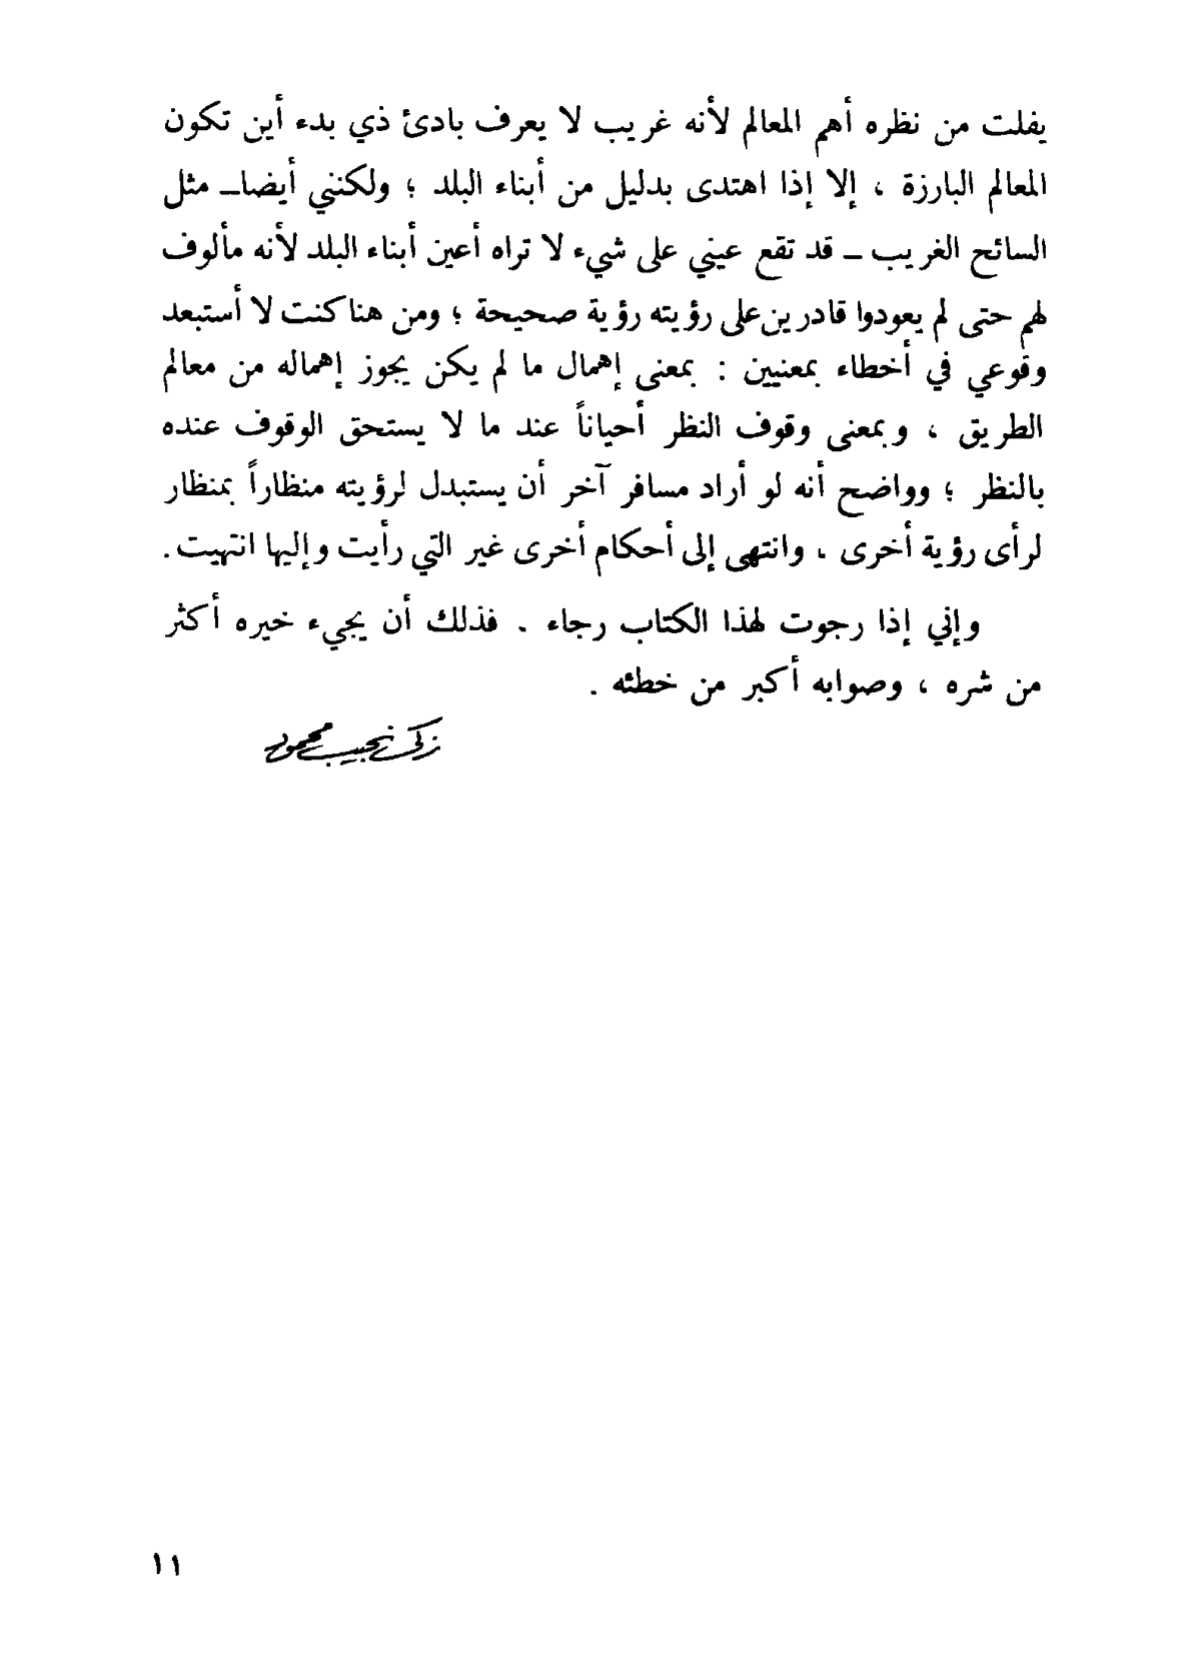 يفلت من نظره أهم المعالم لأنه غريب لا يعرف بادئ ذي بدء أين تكون
المعالم البارزة ، إلا إذا اهتدى بدليل من أبناء البلد ؛ ولكنني أيضا ـ مثل
السائح الغريب ـ قد تقع عيني على شيء لا تراه أعين أبناء البلد لأنه مألوف
لهم حتى لم يعودوا قادرين على رؤيته رؤية صحيحة ؛ ومن هنا كنت لا أستبعد
وقوعي في أخطاء بمعنيين : بمعنى إهمال ما لم يكن يجوز إهماله من معالم
الطريق ، وبمعنى وقوف النظر أحياناً عند ما لا يستحق الوقوف عنده
بالنظر ؛ وواضح أنه لو أراد مسافر آخر أن يستبدل لرؤيته منظاراً بمنظار
لرأى رؤية أخرى ، وانتهى إلى أحكام أخرى غير التي رأيت وإليها انتهيت .
وإني إذا رجوت لهذا الكتاب رجاء . فذلك أن يجيء خيره أكثر
من شره ، وصوابه أكبر من خطئه .
زكي نجيب محمود
١١